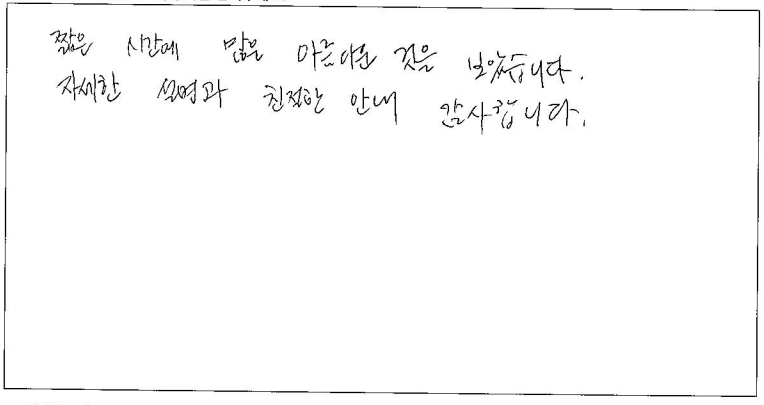 짧은 시간에 많은 아름다운 것을 보았습니다.
자세한 설명과 친절한 안내 감사합니다.